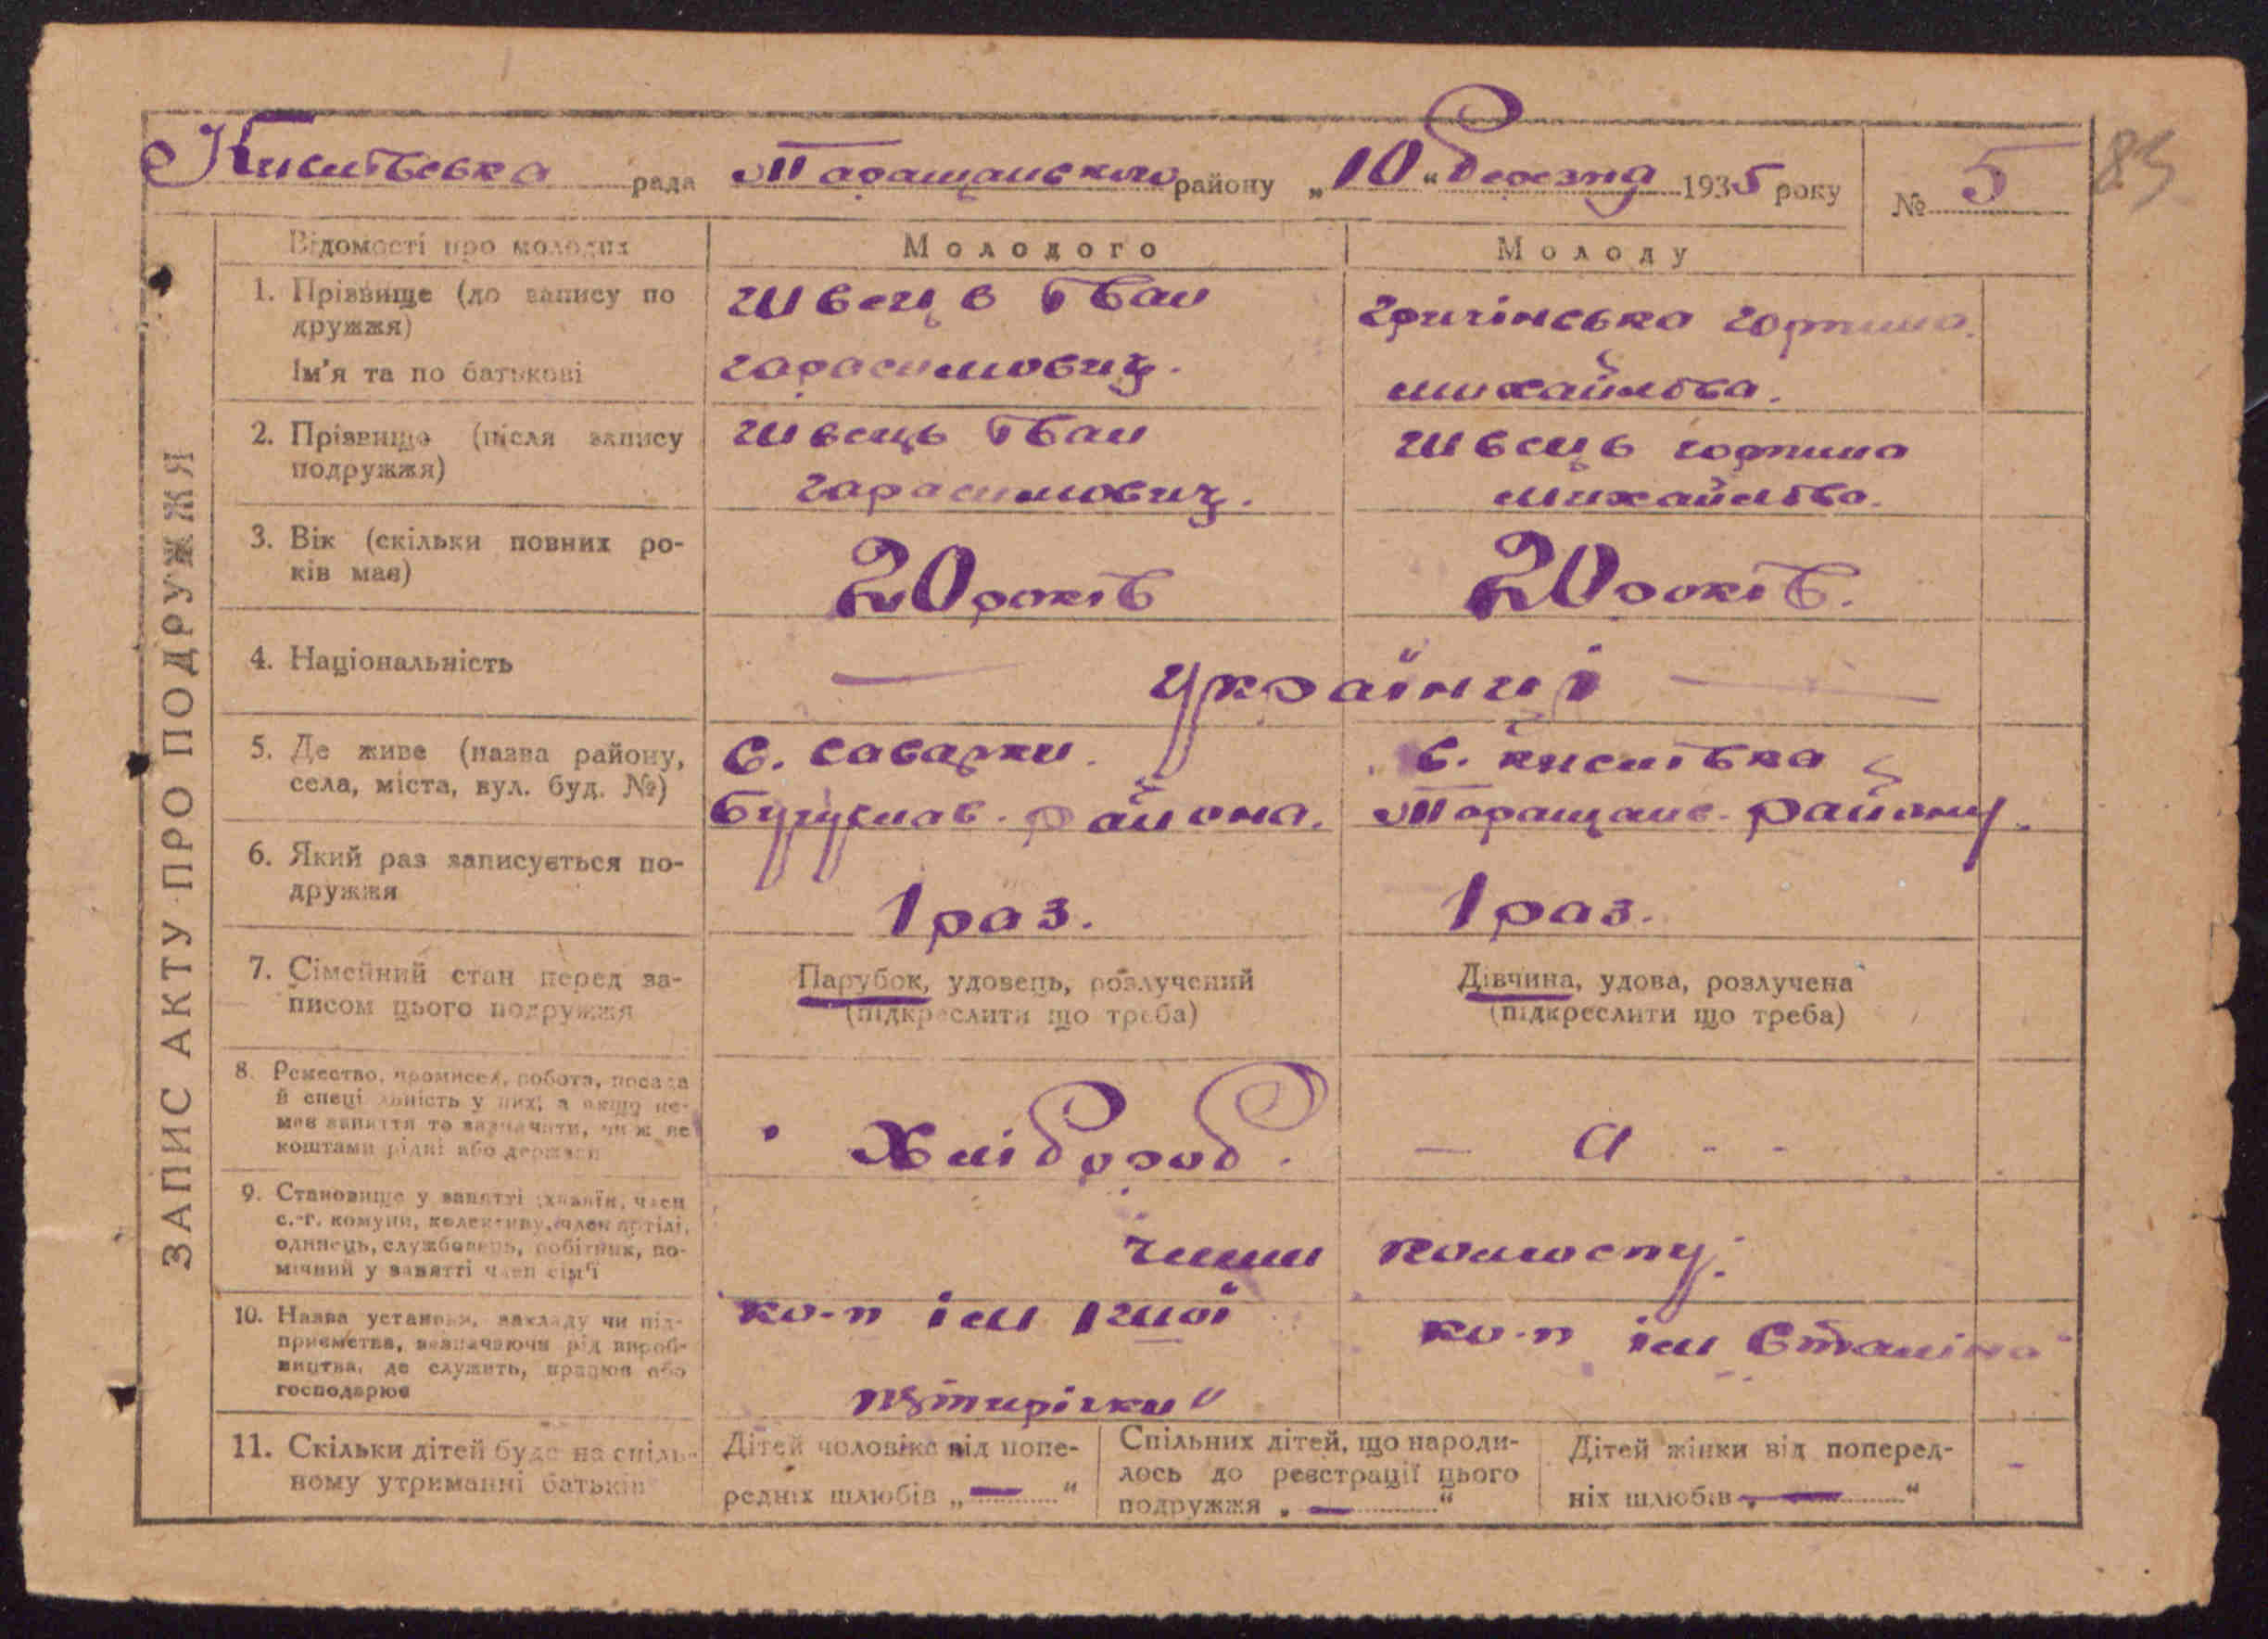 Кислівська рада Таращанського району „10" березня 1935 року № 5
85
ЗАПИС АКТУ ПРО ПОДРУЖЖЯ
Відомості про молодих Молодого Молоду
1. Прізвище (до запису по
дружжя)
Ім'я та по батькові
Швець Іван
гарасимович.
гричінська горпина.
михайлівa.
2. Прізвище (після запису
подружжя)
Швець Іван
гарасимович.
Швець горпина
михайлівa.
3. Вік (скільки повних ро-
ків має)
20 років
20 років.
4. Національність
— українці —
5. Де живе (назва району,
села, міста, вул. буд. №)
с. саварки.
району.
с. кислівка
Таращанс. району.
6. Який раз записується по-
дружжя
1 раз.
1 раз.
7. Сімейний стан перед за-
писом цього подружжя
Парубок, удовець, розлучений
(підкреслити що треба)
Дівчина, удова, розлучена
(підкреслити що треба)
8. Ремество, промисел, робота, посада
й спеціальність у них, а якщо не-
має заняття то зазначити, чиїм
коштами рідні або держави
Хлібороб.
— " — -
9. Становище у занятті (хазяїн, член
с.-г. комуни, колективу, член артілі,
одинець, службовець, робітник, по-
мічний у занятті член сім'ї
члени колгоспу.
10. Назва установи, закладу чи під-
приємства, зазначаючи рід вироб-
ництва, де служить, працює або
господарює
ко-п ім 1шої
пятирічки"
ко-п ім Сталіна
11. Скільки дітей буде на спіль-
ному утриманні батьків
Дітей чоловіка від попе-
редніх шлюбів „—"
Спільних дітей, що народи-
лось до реєстрації цього
подружжя „—"
Дітей жінки від поперед-
ніх шлюбів „—"
-